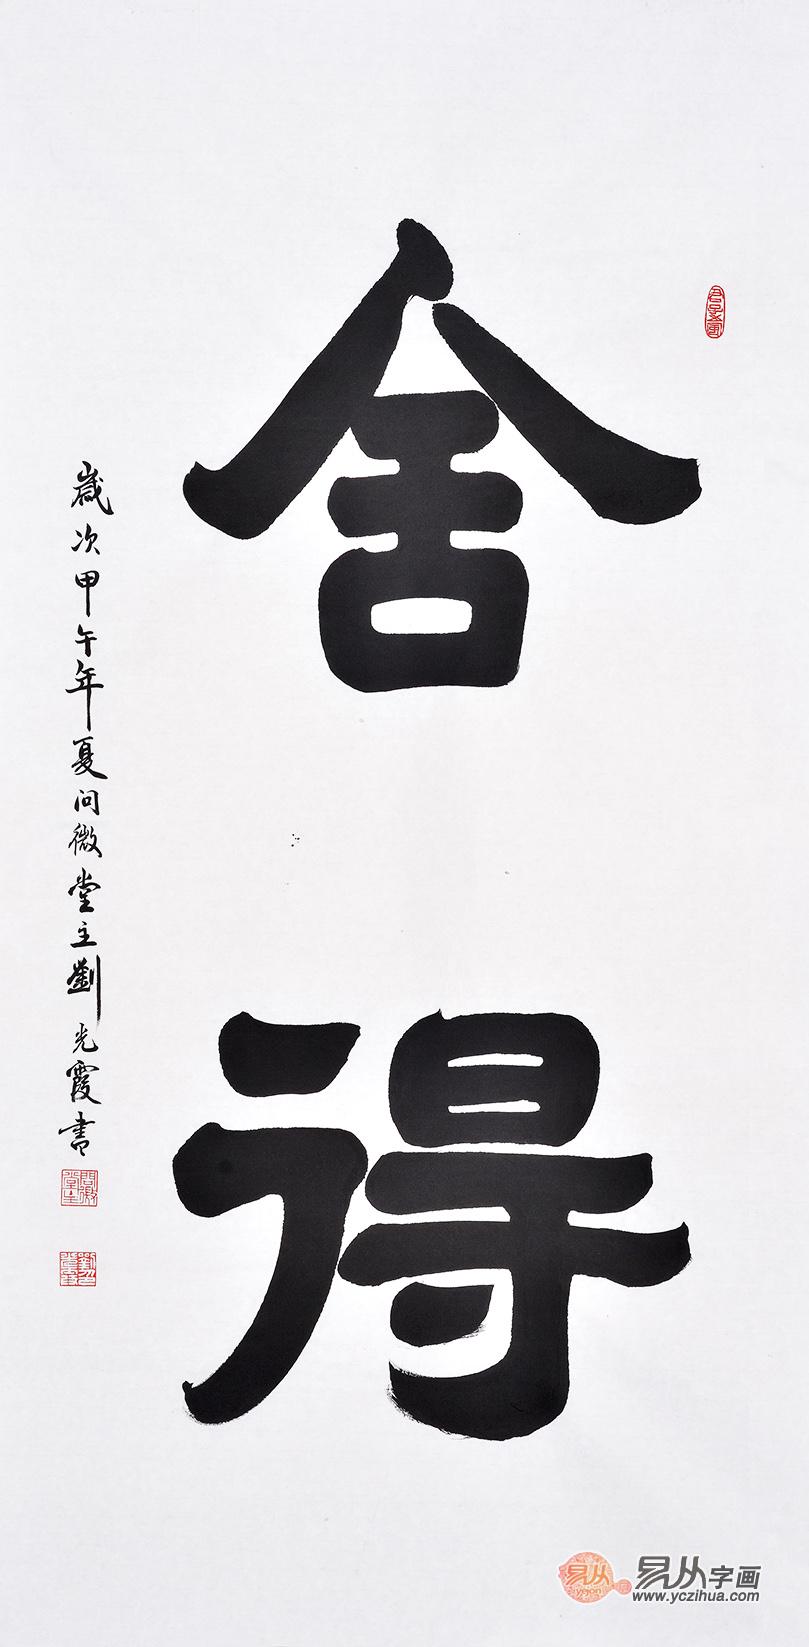 舍得
歲次甲午年夏问微堂主劉光霞书
易从字画
www.yczihua.com
yejon